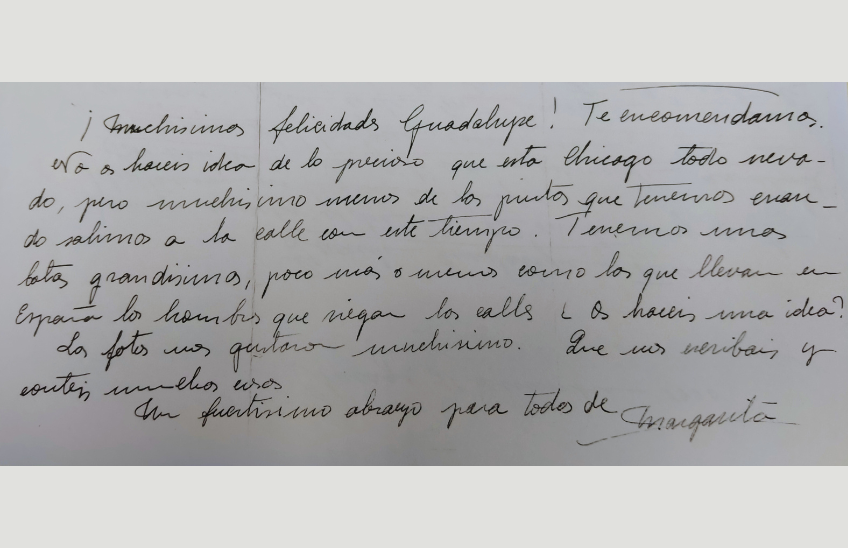 ¡Muchisimas felicidades Guadalupe! Te encomendamos.
No os haceis idea de lo precioso que esta Chicago todo neva-
do, pero muchisimo menos de las pintas que tenemos cuan-
do salimos a la calle con este tiempo. Tenemos unas
botas grandisimas, poco más o menos como las que llevan en
España los hombres que riegan las calles ¿ Os haceis una idea?
Las fotos nos gustaron muchisimo. Que nos escribais y
conteis muchas cosas
Un fuertisimo abrazo para todos de Margarita